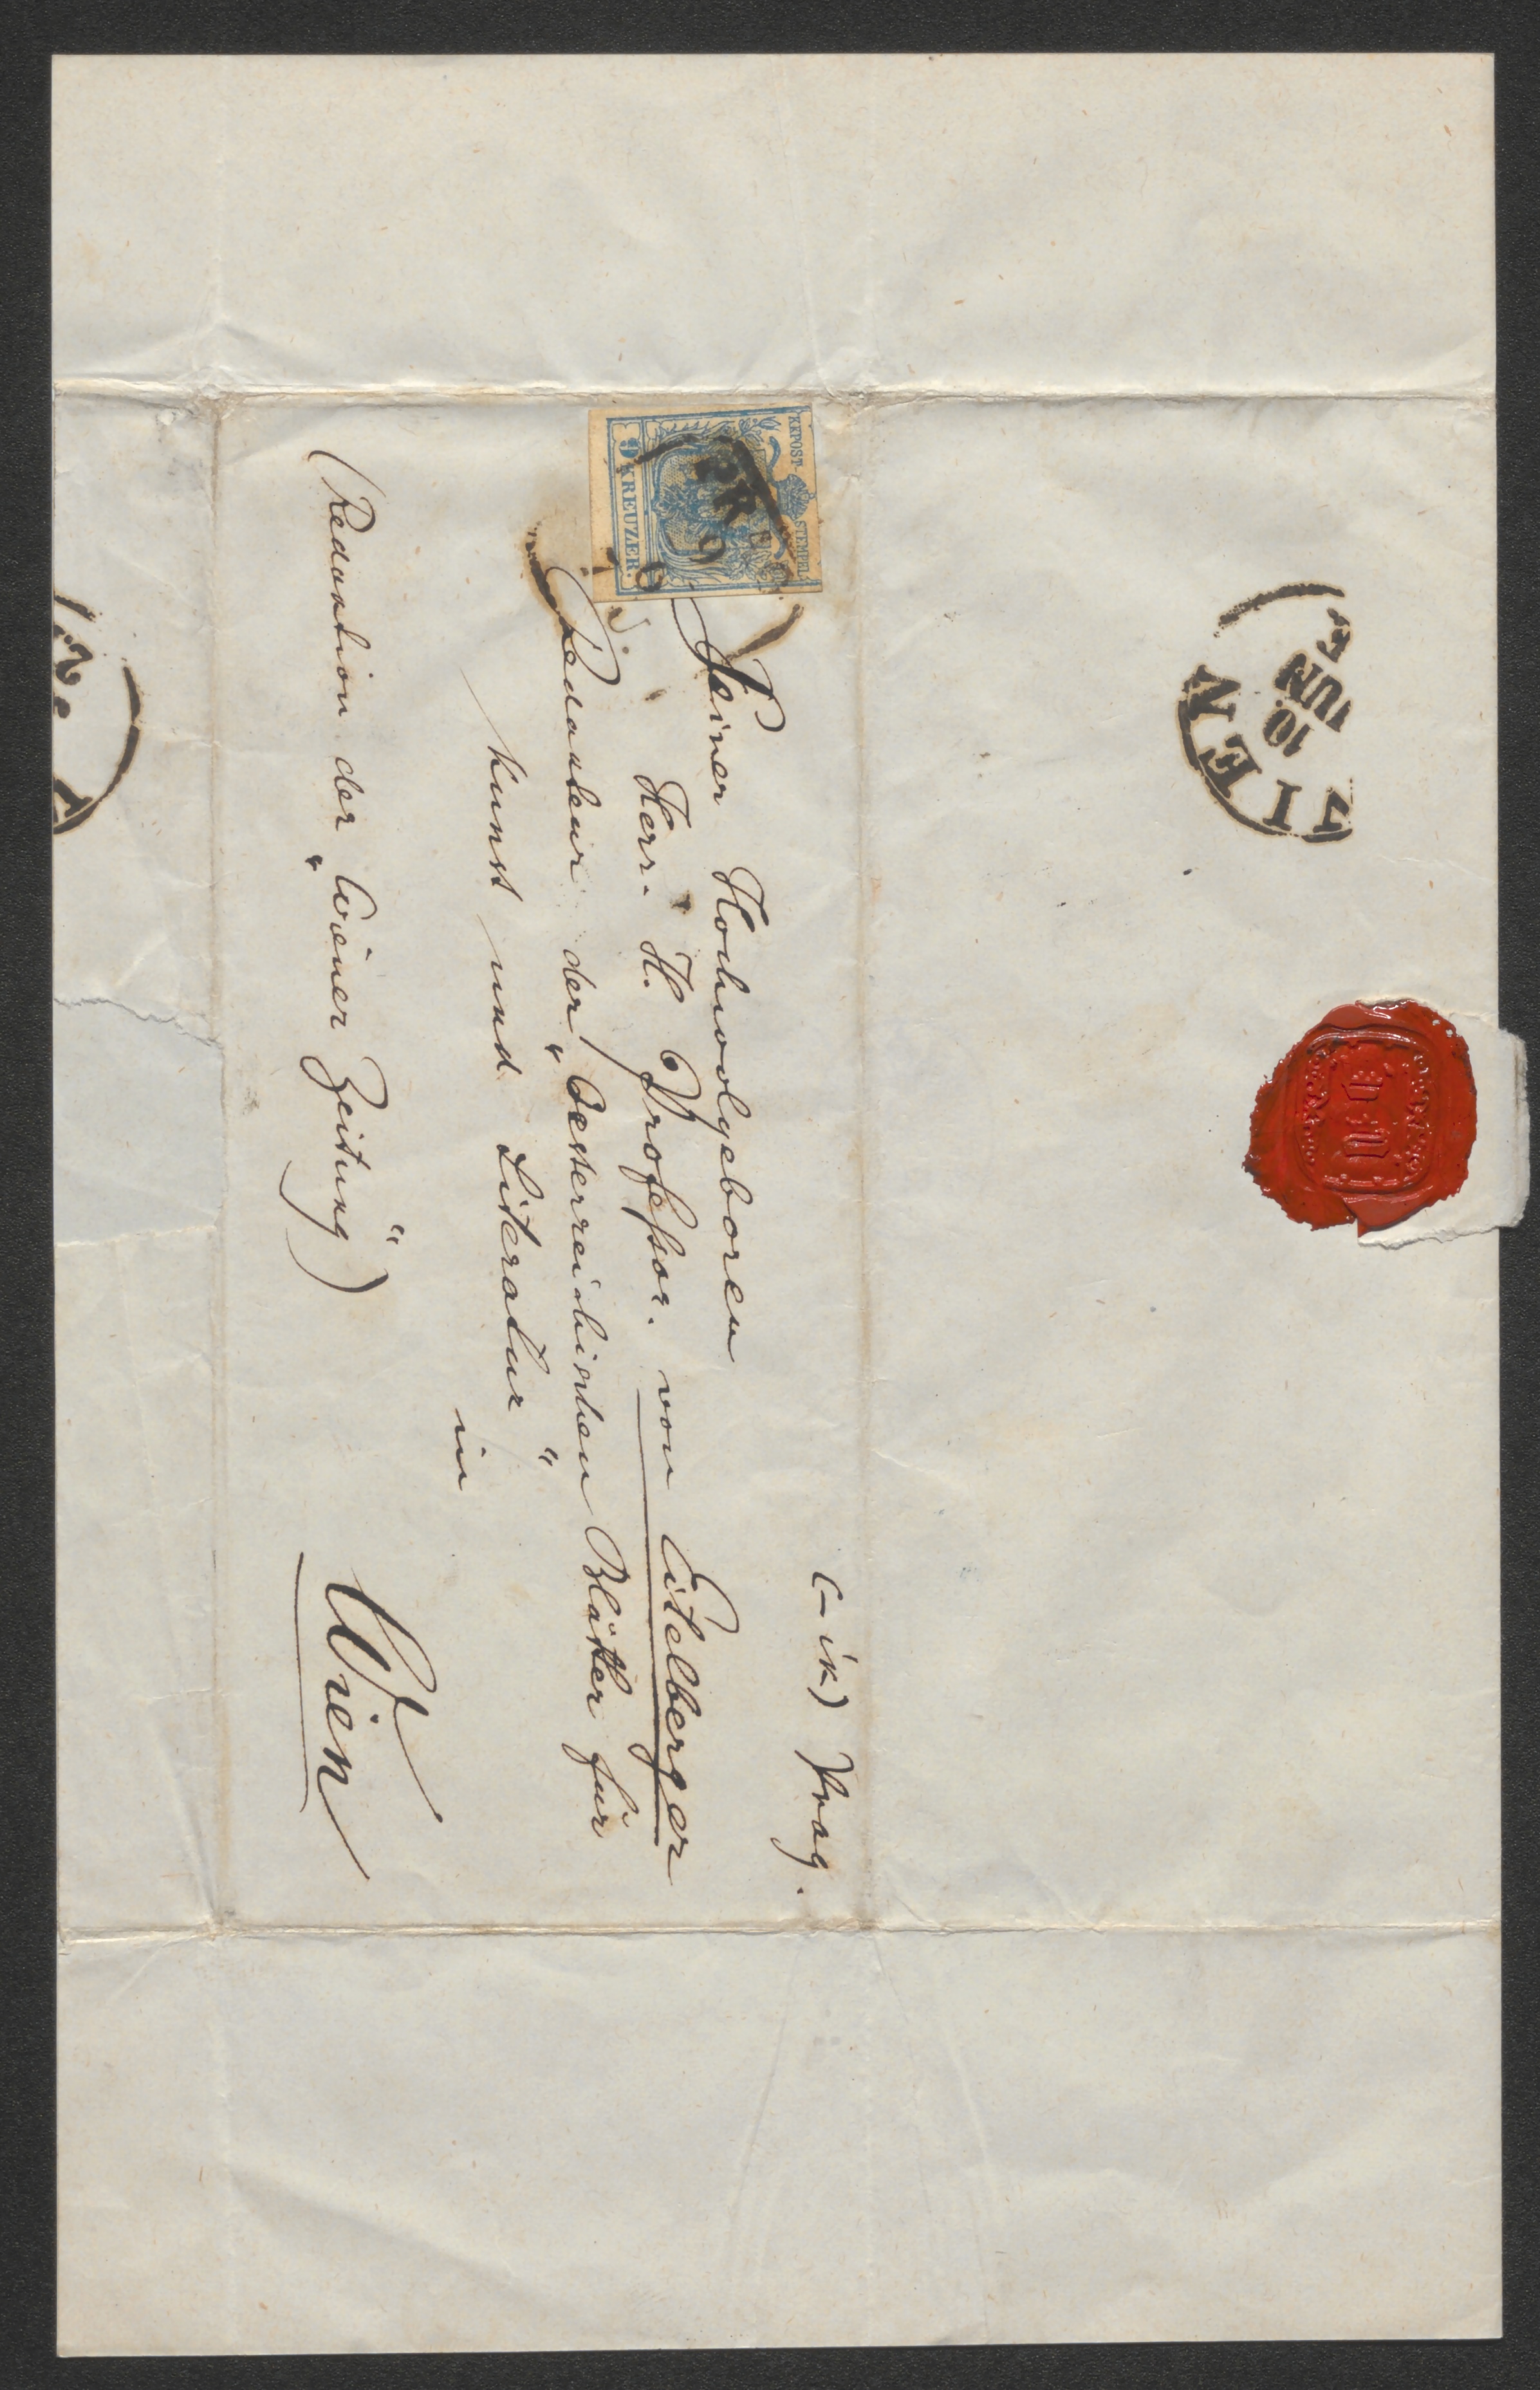 (-ik) Prag.
Seiner Hochwolgeboren
Herr. H. Profeßor. von Eitelberger
Redacteur der „Oesterreichischen Blätter für
Kunst und Literatur“
in
(Redaction der „Wiener Zeitung“)
Wien
KKPOST-STEMPEL
9 KREUZER.
WIEN
10.
JUN